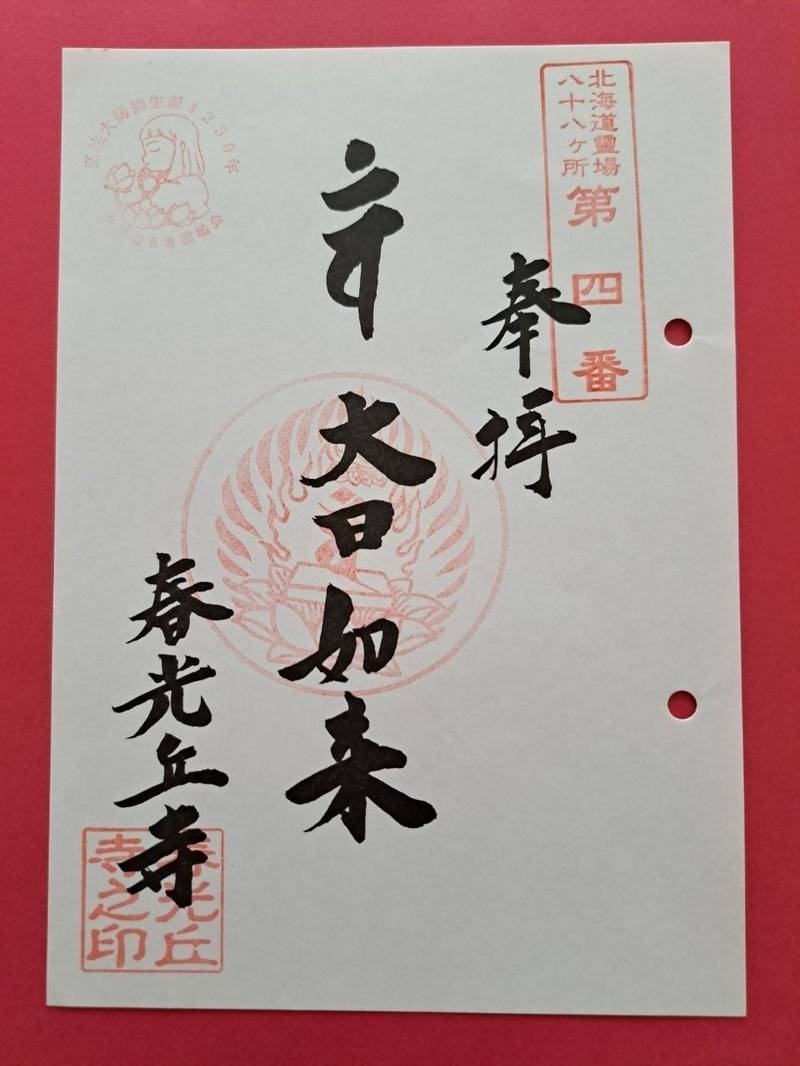 北海道靈場
八十八ヶ所
第四番
奉拝
大日如来
春光丘寺
春光丘
寺之印
弘法大師御生誕1250年